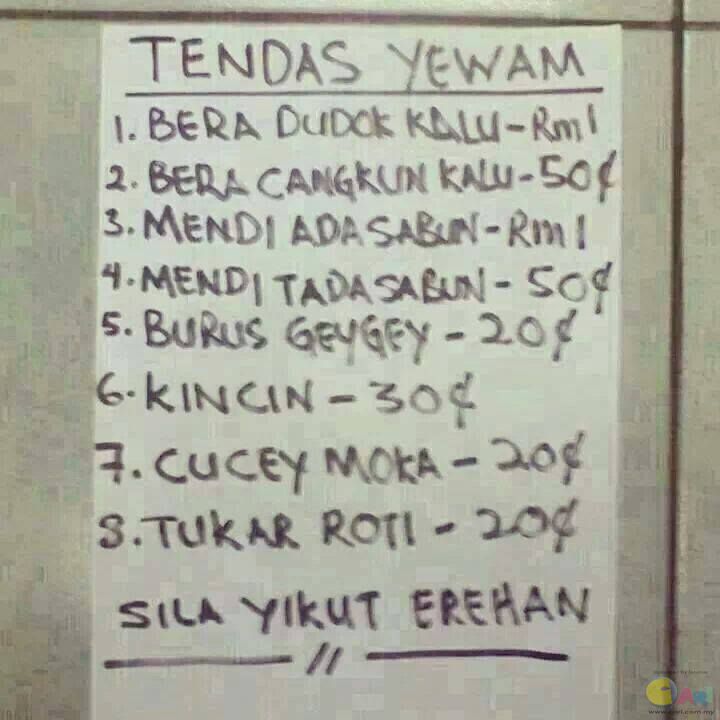 TENDAS YEWAM
1. BERA DUDOK KALU - Rm1
2. BERA CANGKUN KALU - 50¢
3. MENDI ADA SABUN - Rm1
4. MENDI TADA SABUN - 50¢
5. BURUS GEYGEY - 20¢
6. KINCIN - 30¢
7. CUCEY MOKA - 20¢
8. TUKAR ROTI - 20¢
SILA YIKUT EREHAN
//
CARI
www.cari.com.my